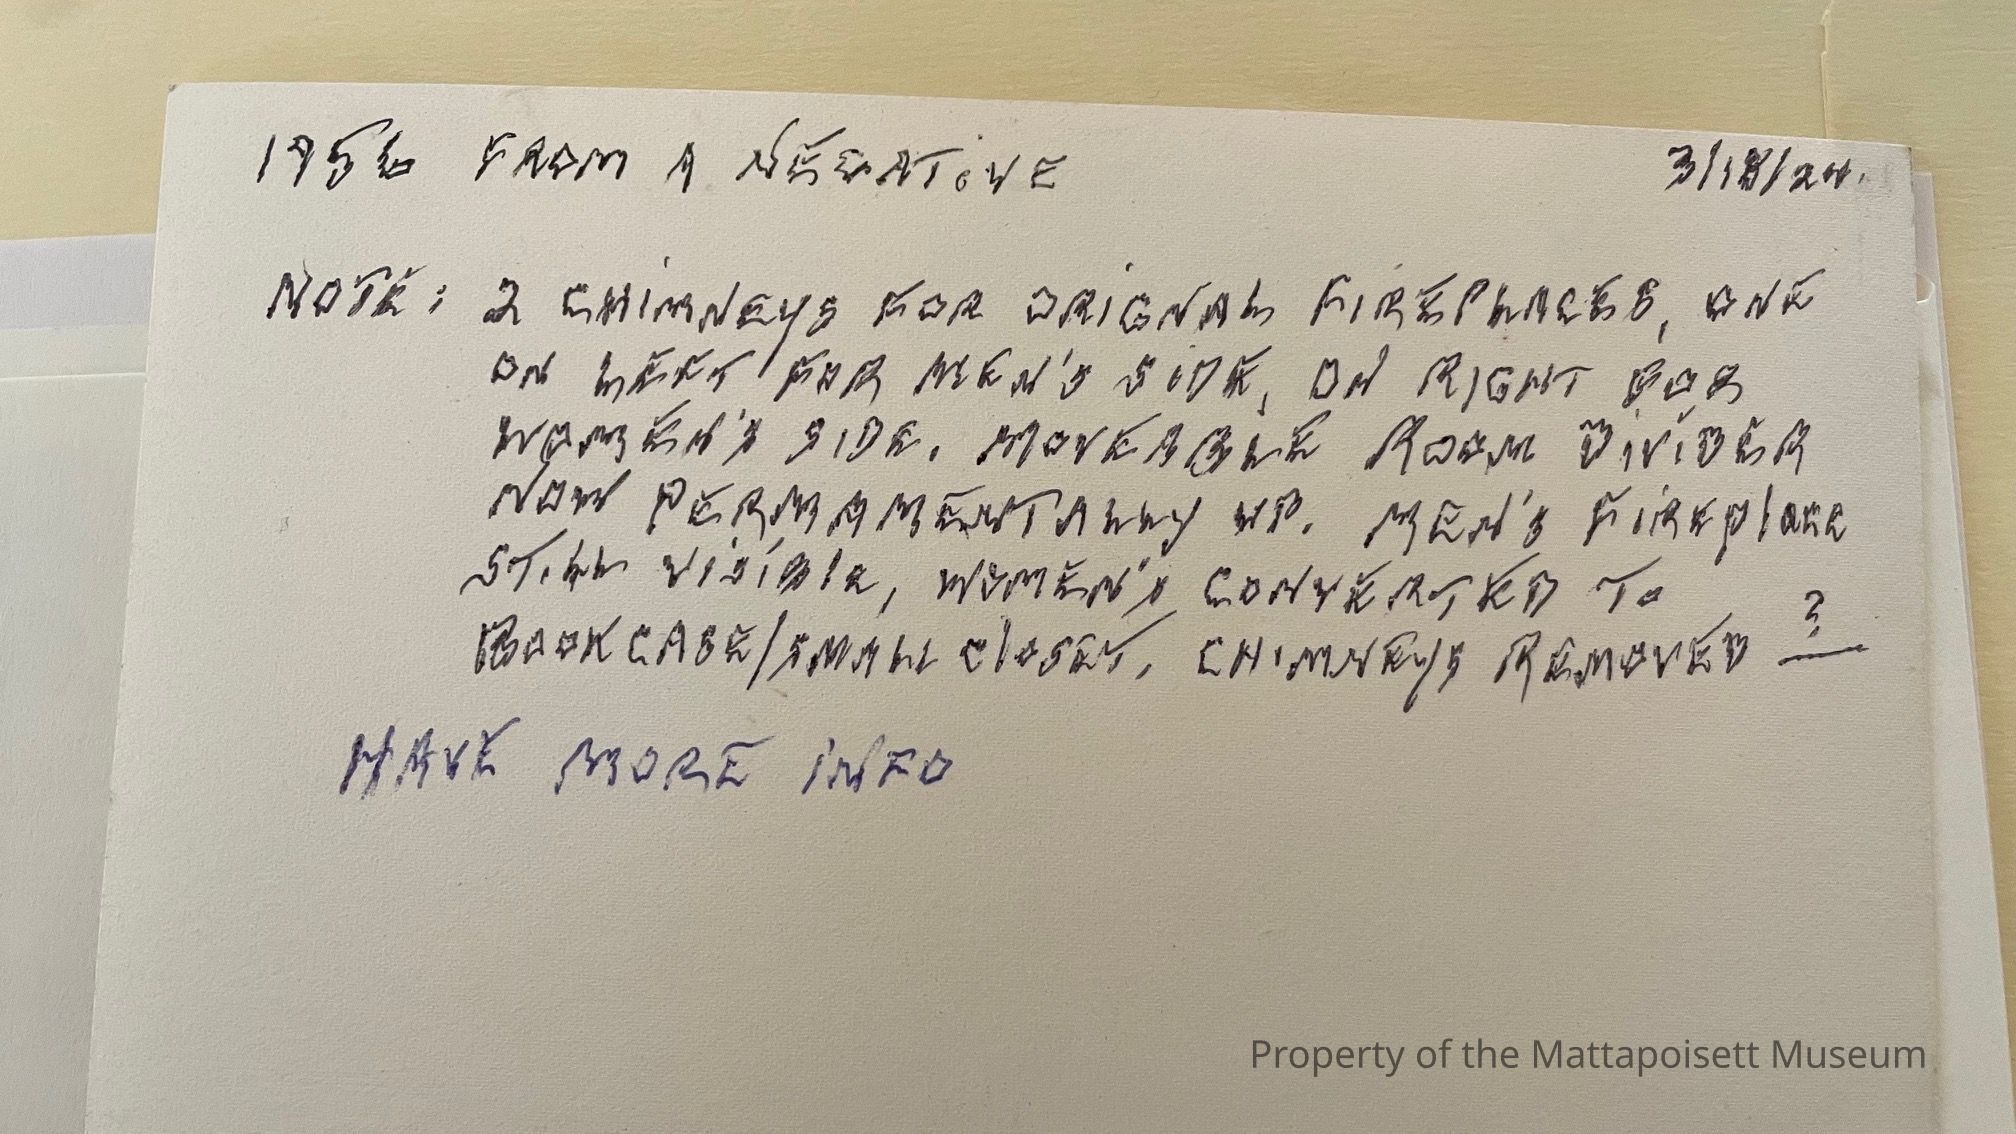 1956 FROM A NEGATIVE 3/18/24.
NOTE: 2 CHIMNEYS FOR ORIGNAL FIREPLACES, ONE
ON LEFT FOR MEN'S SIDE, ON RIGHT FOR
WOMEN'S SIDE. MOVEABLE ROOM DIVIDER
NOW PERMAMENTALLY UP. MEN'S FIREPlace
STILL VISIBLE, WOMEN'S CONVERTED TO
BOOKCASE/SMALL CLOSET. CHIMNEYS REMOVED ?
HAVE MORE INFO
Property of the Mattapoisett Museum